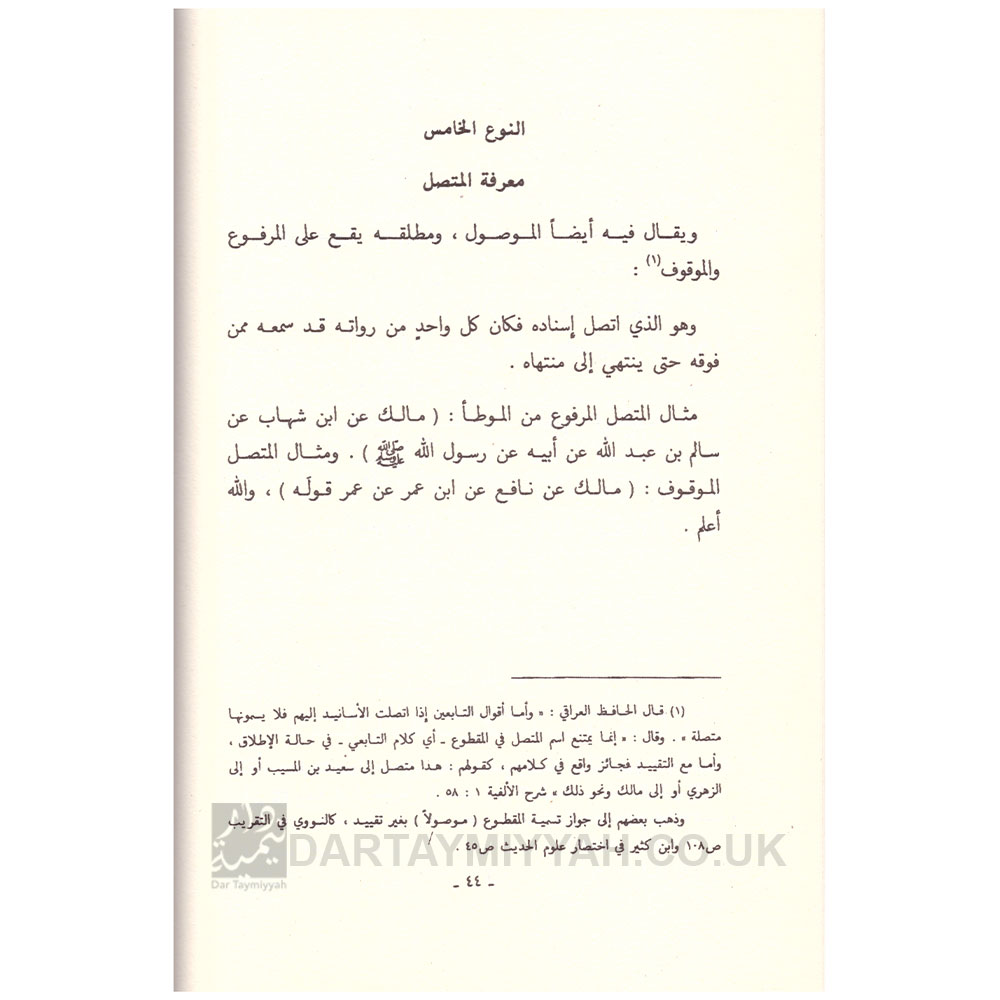 النوع الخامس
معرفة المتصل
ويقال فيه أيضاً الموصول ، ومطلقه يقع على المرفوع
والموقوف(١) :
وهو الذي اتصل إسناده فكان كل واحدٍ من رواته قد سمعه ممن
فوقه حتى ينتهي إلى منتهاه .
مثال المتصل المرفوع من الموطأ : ( مالك عن ابن شهاب عن
سالم بن عبد الله عن أبيه عن رسول الله ﷺ ) . ومثال المتصل
الموقوف : ( مالك عن نافع عن ابن عمر عن عمر قولَه ) ، والله
أعلم .
(١) قال الحافظ العراقي : « وأما أقوال التابعين إذا اتصلت الأسانيد إليهم فلا يسمونها
متصلة » . وقال : « إنما يمتنع اسم المتصل في المقطوع ـ أي كلام التابعي ـ في حالة الإطلاق ،
وأما مع التقييد فجائز واقع في كلامهم ، كقولهم : هذا متصل إلى سعيد بن المسيب أو إلى
الزهري أو إلى مالك ونحو ذلك » شرح الألفية ١ : ٥٨ .
وذهب بعضهم إلى جواز تسمية المقطوع ( موصولاً ) بغير تقييد ، كالنووي في التقريب
ص١٠٨ وابن كثير في اختصار علوم الحديث ص٤٥ .
دار تيمية
Dar Taymiyyah
DARTAYMIYYAH.CO.UK
ـ ٤٤ ـ